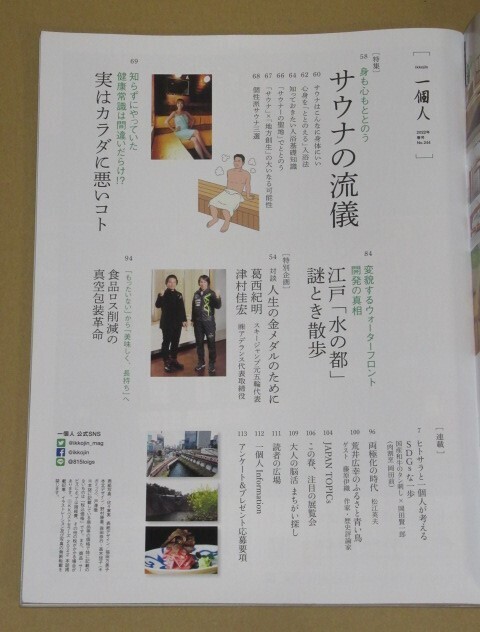 一個人
2022年
春号
No.244
[特集]
58 身も心もととのう
サウナの流儀
60 サウナはこんなに身体にいい
62 心身を「ととのえる」入浴法
64 知っておきたい入浴基礎知識
66 「サウナーの聖地」でととのう
67 「サウナ」×「地方創生」の大いなる可能性
68 個性派サウナ三選
69 知らずにやっていた
健康常識は間違いだらけ!?
実はカラダに悪いコト
84 変貌するウォーターフロント
開発の真相
江戸「水の都」
謎とき散歩
[特別企画]
54 対談 人生の金メダルのために
葛西紀明 スキージャンプ元五輪代表
津村佳宏 ㈱アデランス代表取締役
94 「もったいない」から「美味しく、長持ち」へ
食品ロス削減の
真空包装革命
[連載]
7 ヒトサラと一個人が考える
SDGsな一歩
96 両極化の時代 松江英夫
100 荒井広幸のふるさと青い鳥
ゲスト 藤原伊織 作家・歴史評論家
104 JAPAN TOPICs
106 この春、注目の展覧会
109 大人の脳活 まちがい探し
111 読者の広場
112 一個人 Information
113 アンケート&プレゼント応募要項
一個人 公式SNS
@ikkojin_mag
@ikkojin
@815toigs